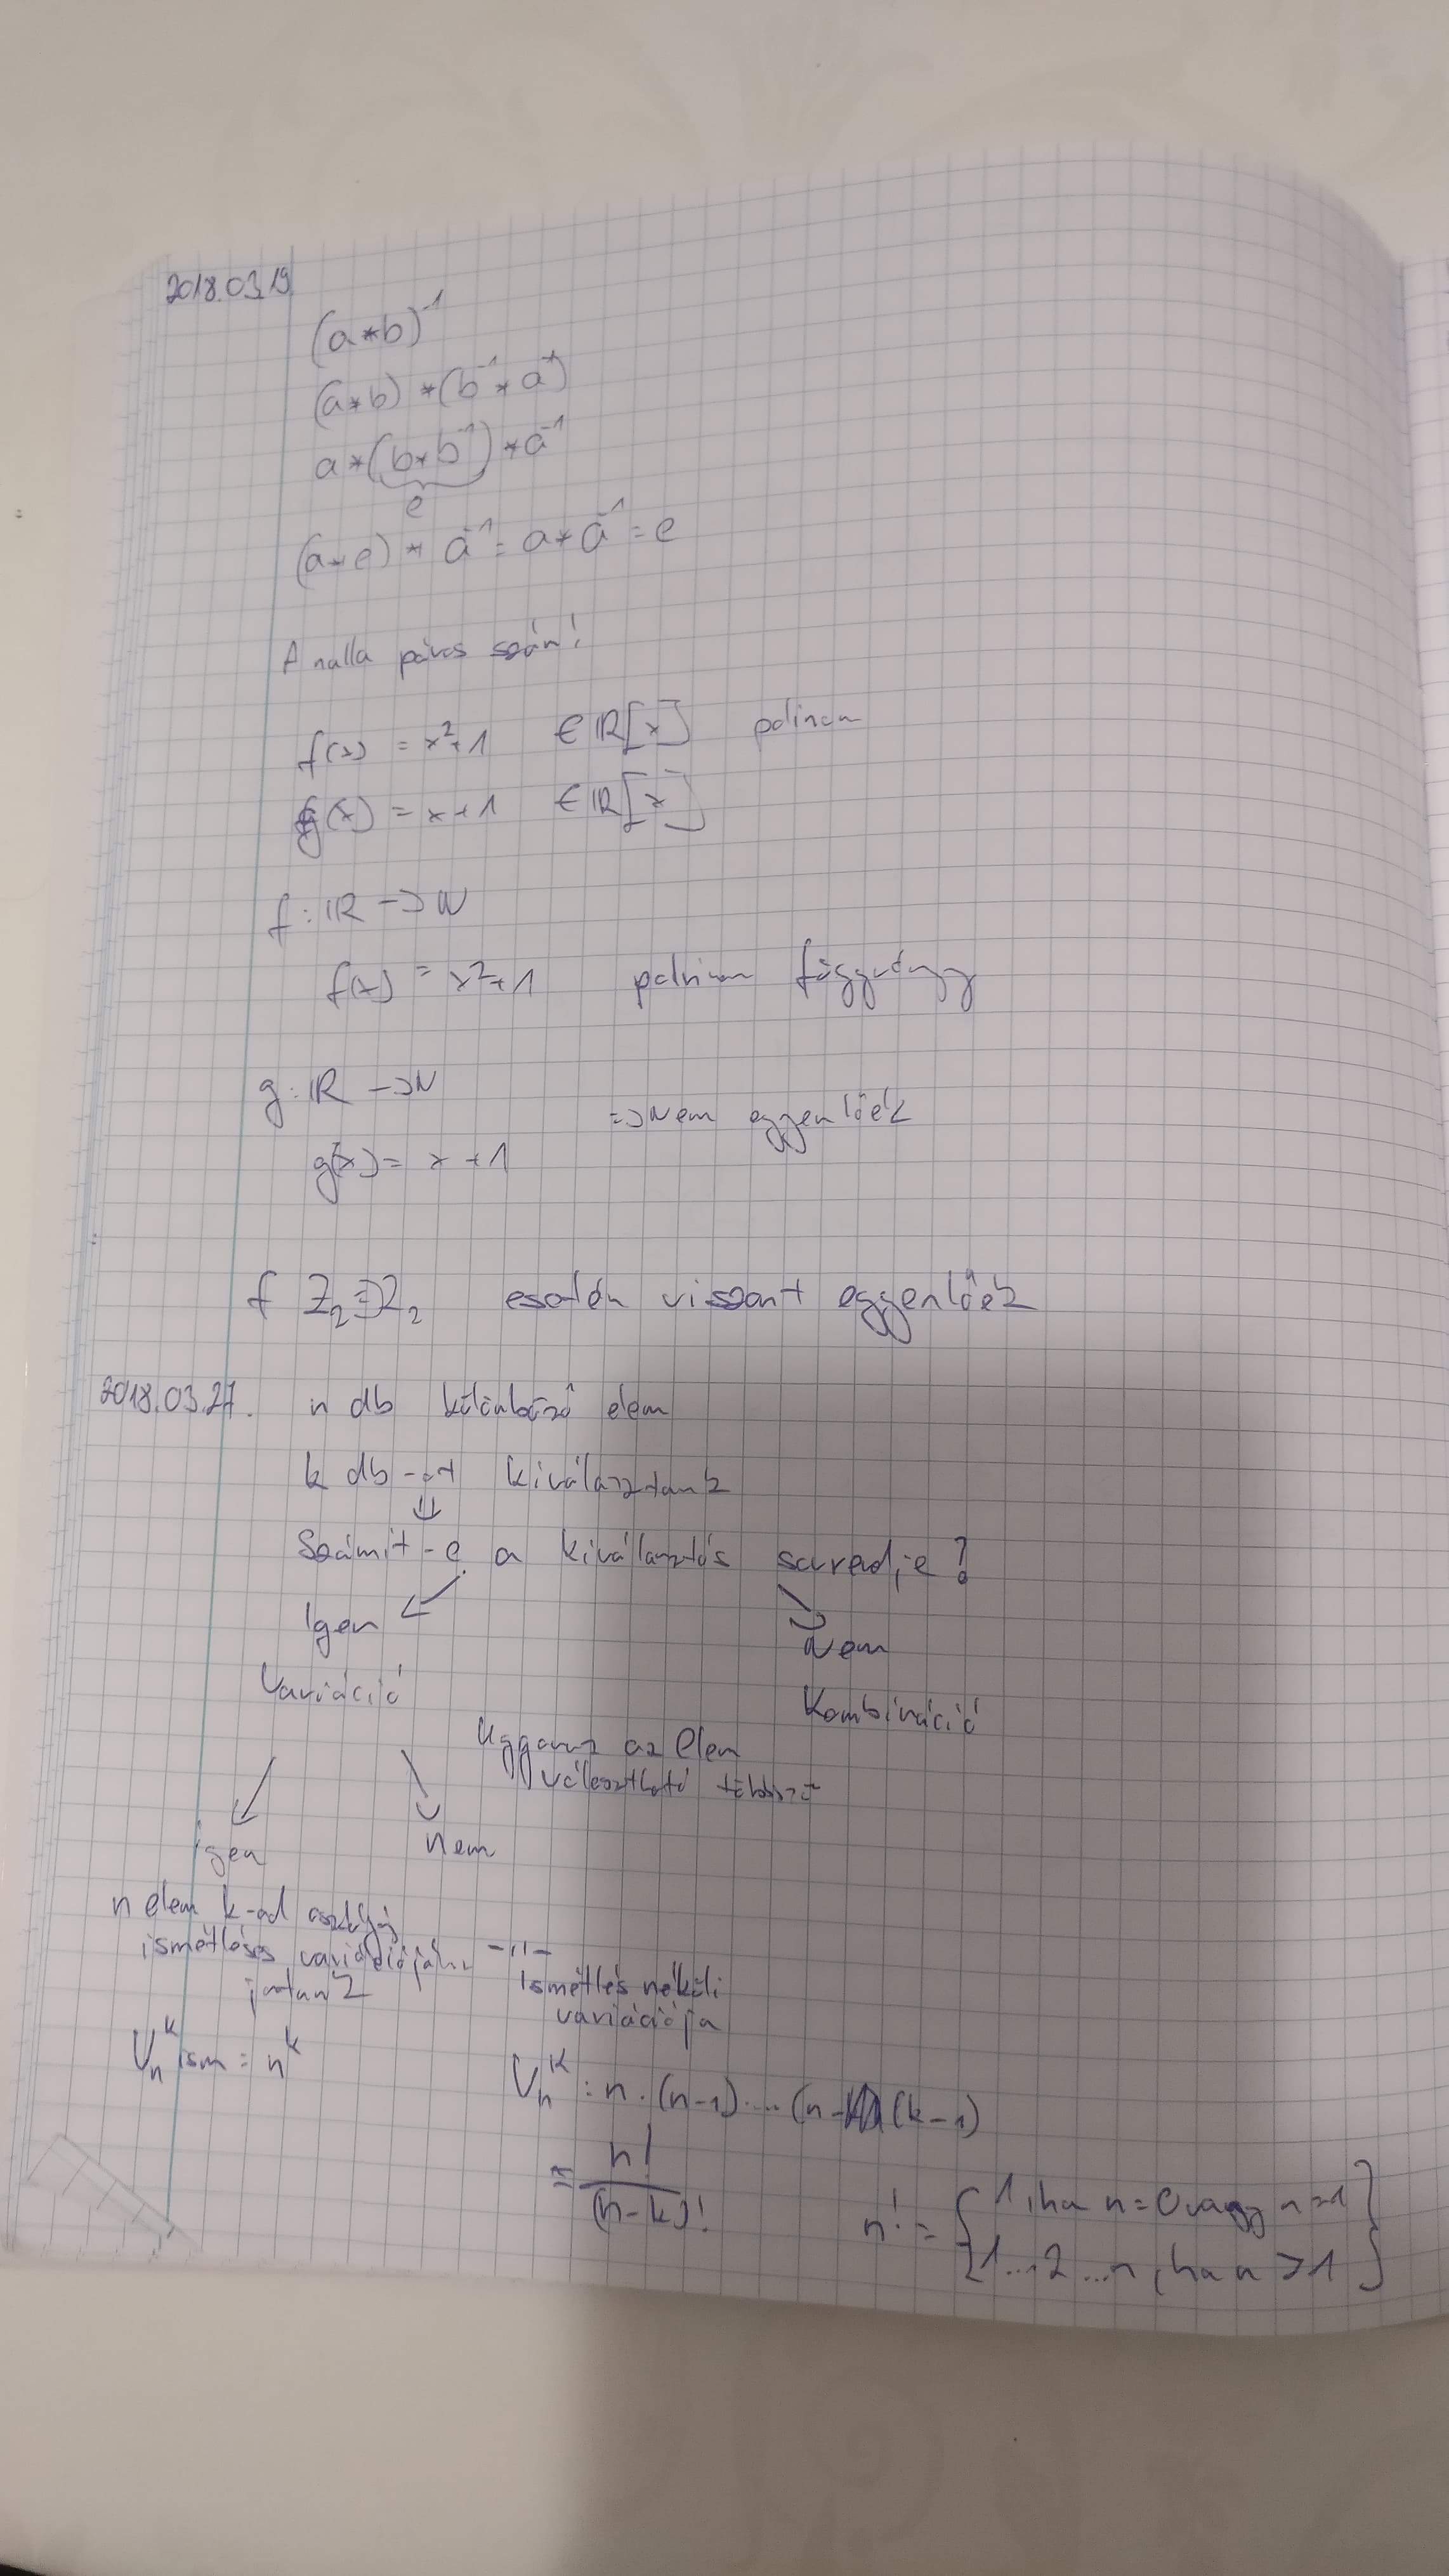 2018.03.19
(a*b)⁻¹
(a*b)*(b⁻¹*a⁻¹)
a*(b*b⁻¹)*a⁻¹
e
(a*e)*a⁻¹=a*a⁻¹=e
A nulla páros szám!
f(x) = x²+1 ∈ℝ[x] polinom
g(x) = x+1 ∈ℝ[x]
f: ℝ → ℕ
f(x) = x²+1 polinom függvény
g: ℝ → ℕ
=> Nem eggyenlőek
g(x) = x+1
f Z₂ → Z₂ esetén viszont eggyenlőek
2018.03.27. n db különböző elem
k db-ot kiválasztunk
⇓
Számít-e a kiválasztás sorrendje?
Igen Nem
Variáció Kombináció
Uggyanaz az elem
választható többször
igen nem
n elem k-ad osztályú
ismétléses variációjához -"-
jutunk Ismétlés nélküli
variációja
Vₙᵏ ism = nᵏ
Vₙᵏ = n·(n-1)....(n-(k-1)
= n!/(n-k)!
n! = {1, ha n=0 vagy n=1}
{1...2...n, ha n>1}